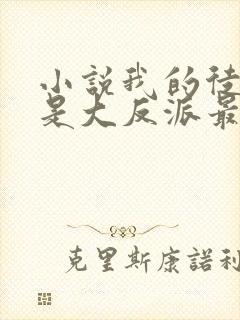 小說我的徒
是大反派最
克里斯康諾利